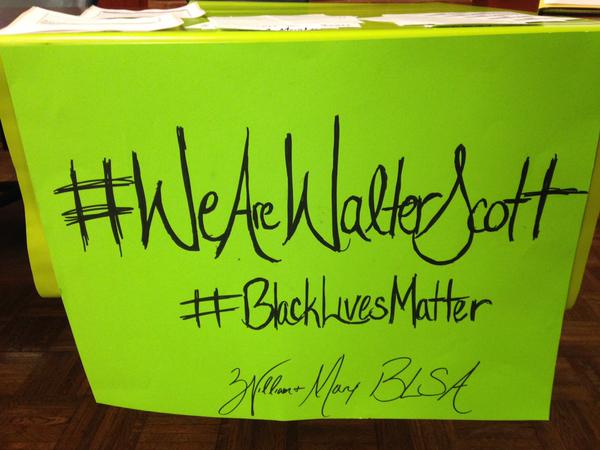 #WeAreWalterScott
#BlackLivesMatter
William + Mary BLSA